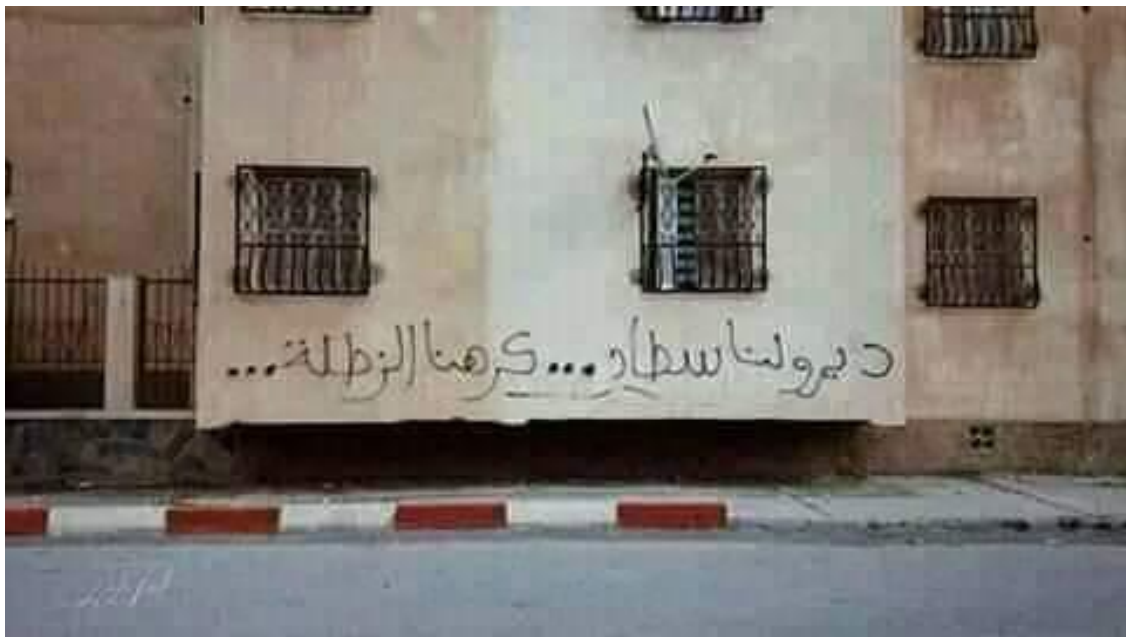 ديرولنا سطاد... كرهنا الزطلة...